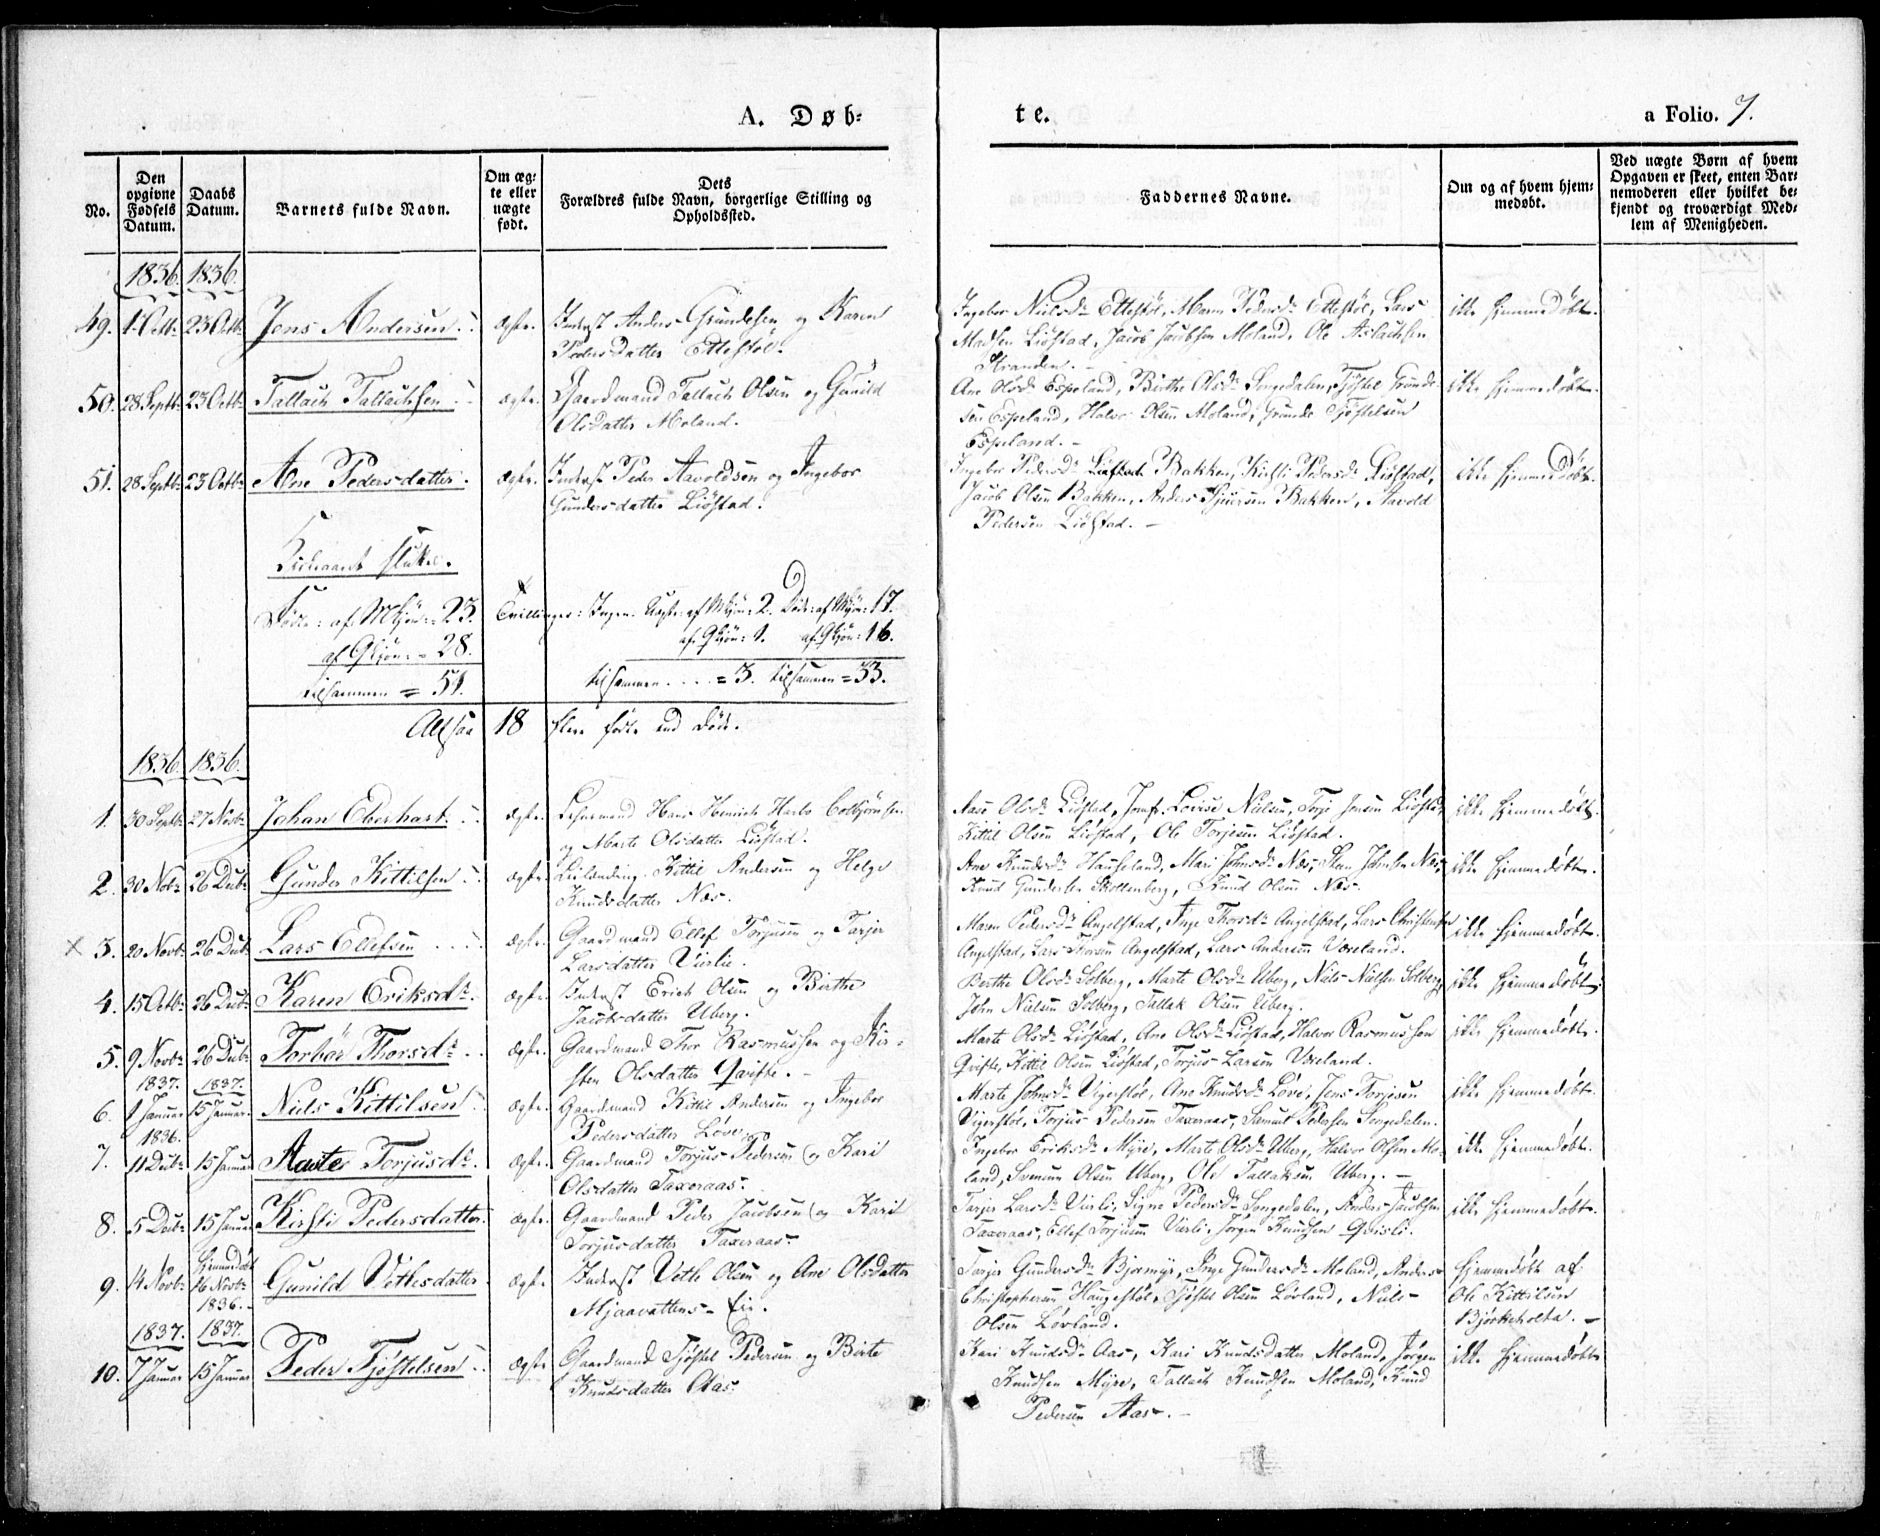 A. Døb-
te.
a Folio. 7.
No.
Den opgivne Fødsels Datum.
Daabs Datum.
Barnets fulde Navn.
Om æg-te eller uægte født.
Dets Forældres fulde Navn, borgerlige Stilling og Opholdssted.
Faddernes Navne.
Om og af hvem hjem-medøbt.
Ved uægte Børn af hvem Opgaven er skeet, enten Bar-nemoderen eller hvilket be-kjendt og troværdigt Med-lem af Menigheden.
1836. 1836.
49. 1 Octbr 23 Octbr Jens Andersen ægte. Inderst Anders Grundesen og Karen
Pedersdatter Ettestøl.
Ingebor Nielsdr Ettestøl, Maren Pedersdr Ettestøl, Lars
Madsen Liøstad, Jacob Jacobsen Moland, Ole Aslachsen
Stranden. ikke hjemmedøbt.
50. 28 Septbr 23 Octbr Tallach Tallachsen ægte. Gaardmand Tallach Olsen og Gunild
Olsdatter Moland.
Ane Olsdr Espeland, Birthe Olsdr Songedalen, Tjøstel Grunde-
sen Espeland, Halvor Olsen Moland, Grunde Tjøstelsen
Espeland. - ikke hjemmedøbt.
51. 28 Septbr 23 Octbr Ane Pedersdatter. ægte. Inderst Peder Aavoldsen og Ingebor
Gundersdatter Liøstad.
Ingebor Pedersdr Liøstad Bakken, Kirsti Pedersdr Liøstad,
Jacob Olsen Bakken, Anders Sjursen Bakken, Aavold
Pedersen Liøstad. - ikke hjemmedøbt.
Kirkeaaret sluttet.
Fødte: af Mkjøn: = 23. Tvillinger: Ingen. Uægte: af Mkjøn: 2. Døde: af Mkjøn: 17.
af Qkjøn: = 28. af Qkjøn: 1. af Qkjøn: 16.
tilsammen = 51. tilsammen .... = 3. tilsammen = 33.
Altsaa 18 flere fødte end døde.
1836. 1836.
1. 30 Septbr 27 Novbr Johan Eberhart ægte. Lehnsmand Hans Henrich Harbo Colbjørnsen
og Marte Olsdatter Liøstad.
Aase Olsdr Liøstad, Jomfr. Lovise Nielsen, Torje Jensen Liøstad,
Kittil Olsen Liøstad, Ole Torjesen Liøstad. ikke hjemmedøbt.
2. 30 Novbr 26 Decbr Gunder Kittilsen ægte. Leilænding Kittil Andersen og Helge
Knudsdatter Næs.
Ane Knudsdr Hauseland, Mari Johnsdr Næs, Steen Johnsen Næs,
Knud Gundersen Skottenberg, Knud Olsen Næs. ikke hjemmedøbt.
× 3. 20 Novbr 26 Decbr Lars Ellefsen ægte. Gaardmand Ellef Torjusen og Tarjer
Larsdatter Vierlie.
Maren Pedersdr Angelstad, Inge Thorsdr Angelstad, Lars Christensen
Angelstad, Lars Thorsen Angelstad, Lars Andersen Væreland. ikke hjemmedøbt.
4. 15 Octbr 26 Decbr Karen Eriksdr. ægte. Inderst Erich Olsen og Birthe
Jacobsdatter Uberg.
Berthe Olsdr Solberg, Marte Olsdr Uberg, Niels Nielsen Solberg,
John Nielsen Solberg, Tallak Olsen Uberg. ikke hjemmedøbt.
5. 9 Novbr 26 Decbr Torbor Thorsdr ægte. Gaardmand Thor Rasmussen og Kir-
sten Olsdatter Qvifte. -
Marte Olsdr Liøstad, Ane Olsdr Liøstad, Halvor Rasmussen
Qvifte, Kittil Olsen Liøstad, Torjus Larsen Væreland. ikke hjemmedøbt.
1837. 1837.
6. 1 Januar 15 Januar Niels Kittilsen ægte. Gaardmand Kittil Andersen og Ingebor
Pedersdatter Løve.
Marte Johnsdr Vigerstøl, Ane Knudsdr Løve, Jens Torjesen
Vigerstøl, Torjus Pedersen Taxeraas, Samuel Pedersen Songedalen. ikke hjemmedøbt.
1836.
7. 11 Decbr 15 Januar Aaste Torjusdr. ægte. Gaardmand Torjus Pedersen og Kari
Olsdatter Taxeraas.
Ingebor Eriksdr Myre, Marte Olsdr Uberg, Halvor Olsen Mo-
land, Svenum Olsen Uberg, Ole Tallaksen Uberg. - ikke hjemmedøbt.
8. 5 Decbr 15 Januar Kirsti Pedersdatter. ægte. Gaardmand Peder Jacobsen og Kari
Torjusdatter Taxeraas.
Tarjer Larsdr Vierli, Signe Pedersdr Songedalen, Anders Jacobsen
Taxeraas, Ellef Torjusen Vierli, Jørgen Knudsen Qvisli. ikke hjemmedøbt.
9. 14 Novbr hjemmedøbt 16 Novbr 1836. Gunild Vetlesdatter ægte. Inderst Vetle Olsen og Ane Olsdatter
Mjaavattens-Eie.
Tarjer Gundersdr Bjormyr, Inge Gundersdr Moland, Anders
Christophersen Haugestøl, Tjøstel Olsen Løvland, Niels
Olsen Løvland.
hjemmedøbt af
Ole Kittilsen
Bjørkeholta. -
1837. 1837.
10. 7 Januar 15 Januar Peder Tjøstelsen ægte Gaardmand Tjøstel Pedersen og Birte
Knudsdatter Aas.
Kari Knudsdr Aas, Kari Knudsdatter Moland, Jørgen
Knudsen Myre, Tallach Knudsen Moland, Knud
Pedersen Aas. - ikke hjemmedøbt